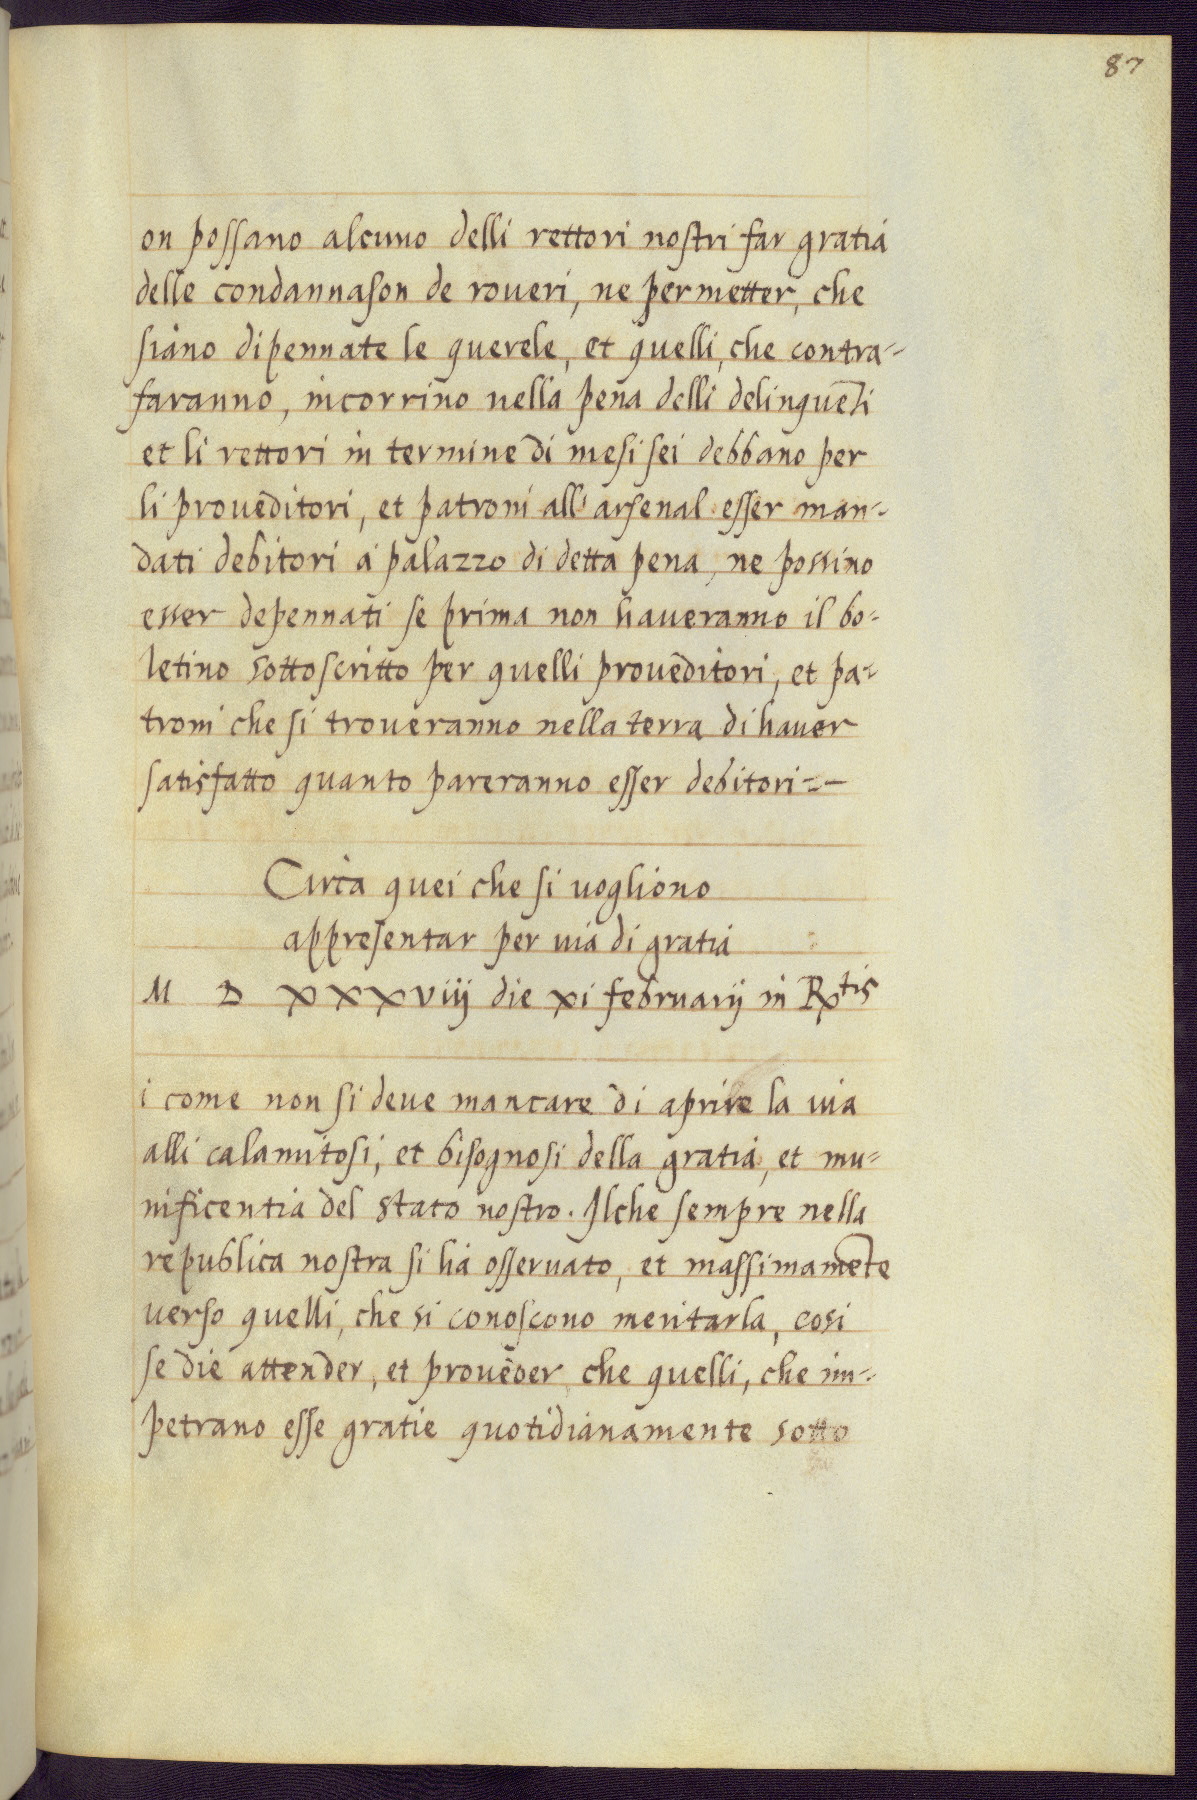 87
on possano alcuno delli rettori nostri far gratia
delle condannason de roueri, ne permetter, che
siano dipennate le querele, et quelli, che contra-
faranno, incorrino nella pena delli delinquēti
et li rettori in termine di mesi sei debbano per
li proueditori, et patroni all' arsenal esser man-
dati debitori a palazzo di detta pena, ne possino
esser depennati se prima non haueranno il bo-
letino sottoscritto per quelli proueditori, et pa-
troni che si troueranno nella terra di hauer
satisfatto quanto pareranno esser debitori
Circa quei che si uogliono
appresentar per uia di gratia
M D XXXVIIJ die xi februarij in Rtis
i come non si deue mancare di aprire la uia
alli calamitosi, et bisognosi della gratia, et mu-
nificentia del stato nostro. Ilche sempre nella
republica nostra si ha osseruato, et massimamēte
verso quelli, che si conoscono meritarla, cosi
se die attender, et proueder che quelli, che im-
petrano esse gratie quotidianamente sotto